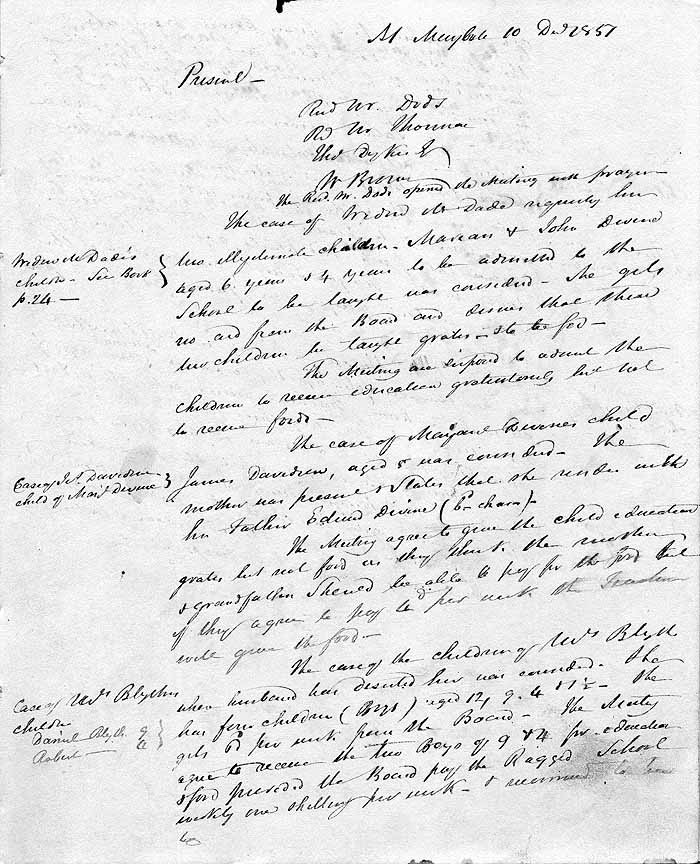 At Maybole 10 Decr 1851
Present –
Revd Mr. Dods
Rd Mr Thomson
Thos Dykes Esq
Mr Brown
The Revd. Mr. Dods opened the Meeting with prayer
The case of Widow McDade's requesting her
Widow McDade's
children – See Book
p. 24 –
two illegitimate children – Marian & John Devine
aged 6 years & 4 years to be admitted to the
School to be taught was considered – She gets
no aid from the Board and desires that these
two children be taught gratis – & to be fed –
The Meeting are disposed to admit the
children to receive education gratuitously but not
to receive food –
The case of Margaret Devines child
Case of Js. Davidson
child of Mart Devine
James Davidson, aged 5 was considered – The
mother was present & States that she resides with
her Father Edward Divine
The Meeting agree to give the child education
gratis but not food as they think the mother
& grandfather should be able to pay for the food but
if they agree to pay per week the Teacher
will give the food –
The case of the children of Mrs Blyth
Case of Mrs Blyths
children
Daniel Blyth 9
Robert – 4
whose husband has deserted her was considered. She
has four children (Boys) aged 12, 9, 4 & 1½ – She
gets per week from the Board – The Meeting
agree to receive the two Boys of 9 & 4 for education
& food provided the Board pay the Ragged School
weekly one shilling per week – & recommend to